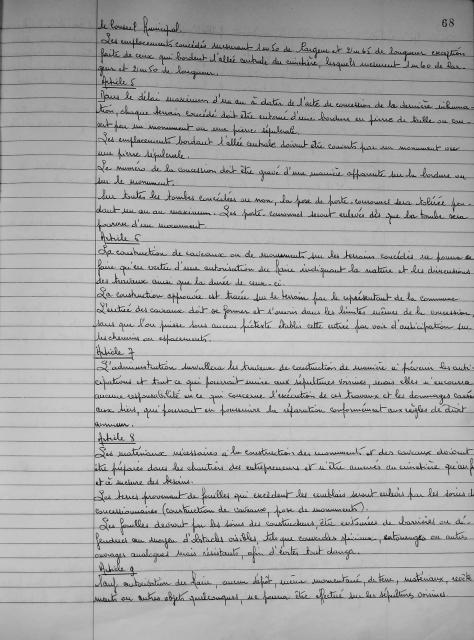 68
le Conseil Municipal.
Les emplacements concédés mesurent 1m50 de largeur et 2m65 de longueur exception
faite de ceux qui bordent l'allée centrale du cimetière, lesquels mesurent 1m60 de lar-
geur et 2m50 de longueur.
Article 5
Dans le délai maximum d'un an à dater de l'acte de concession de la dernière inhuma-
tion, chaque terrain concédé doit être entouré d'une bordure en pierre de taille ou
vert par un monument ou une pierre sépulcrale.
Les emplacements bordant l'allée centrale doivent être couverts par un monument avec
une pierre sépulcrale.
Le numéro de la concession doit être gravé d'une manière apparente sur la bordure ou
sur le monument.
Sur toutes les tombes concédées ou non, la pose de porte-couronnes sera tolérée pen-
dant un an au maximum. Les porte-couronnes seront enlevés dès que la tombe sera
pourvue d'un monument
Article 6
La construction de caveaux ou de monuments sur les terrains concédés ne pourra se
faire qu'en vertu d'une autorisation du Maire indiquant la nature et les dimensions
des travaux ainsi que la durée de ceux-ci.
La construction approuvée est tracée sur le terrain par le représentant de la commune
L'entrée des caveaux doit se former et s'ouvrir dans les limites mêmes de la concession,
sans que l'on puisse sous aucun prétexte établir cette entrée par voie d'anticipation sur
les chemins ou espacements.
Article 7
L'administration surveillera les travaux de construction de manière à prévenir les anti-
cipations et tout ce qui pourrait nuire aux sépultures voisines, mais elle n'encourra
aucune responsabilité en ce qui concerne l'exécution de ces travaux et les dommages causés
aux tiers, qui pourront en poursuivre la réparation conformément aux règles de droit
commun.
Article 8
Les matériaux nécessaires à la construction des monuments et des caveaux doivent
être préparés dans les chantiers des entrepreneurs et n'être amenés au cimetière qu'au f
et à mesure des besoins.
Les terres provenant de fouilles qui excèdent les remblais seront enlevés par les soins d
concessionnaires (construction de caveaux, pose de monuments).
Les fouilles devront par les soins des constructeurs, être entourées de barrières ou dé-
fendues au moyen d'obstacles visibles, tels que couvercles spéciaux, ou autres
ouvrages analogues mais résistants, afin d'éviter tout danger.
Article 9
Sauf autorisation du Maire, aucun dépôt, même momentané, de terre, matériaux, revête
ments ou autres objets quelconques, ne pourra être effectué sur les sépultures voisines